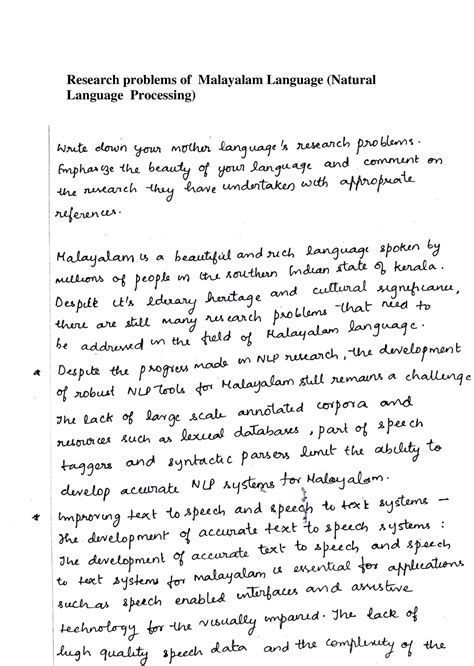 Research problems of Malayalam Language (Natural
Language Processing)
Write down your mother language's research problems.
Emphasize the beauty of your language and comment on
the research they have undertaken with appropriate
references.
Malayalam is a beautiful and rich language spoken by
millions of people in the southern Indian state of Kerala.
Despite it's literary heritage and cultural significance,
there are still many research problems that need to
be addressed in the field of Malayalam language.
* Despite the progress made in NLP research, the development
of robust NLP Tools for Malayalam still remains a challenge
The lack of large scale annotated corpora and
resources such as lexical databases, part of speech
taggers and syntactic parsers limit the ability to
develop accurate NLP systems for Malayalam.
* Improving text to speech and speech to text systems –
The development of accurate text to speech systems :
The development of accurate text to speech and speech
to text systems for malayalam is essential for applications
such as speech enabled interfaces and assistive
technology for the visually impaired. The lack of
high quality speech data and the complexity of the